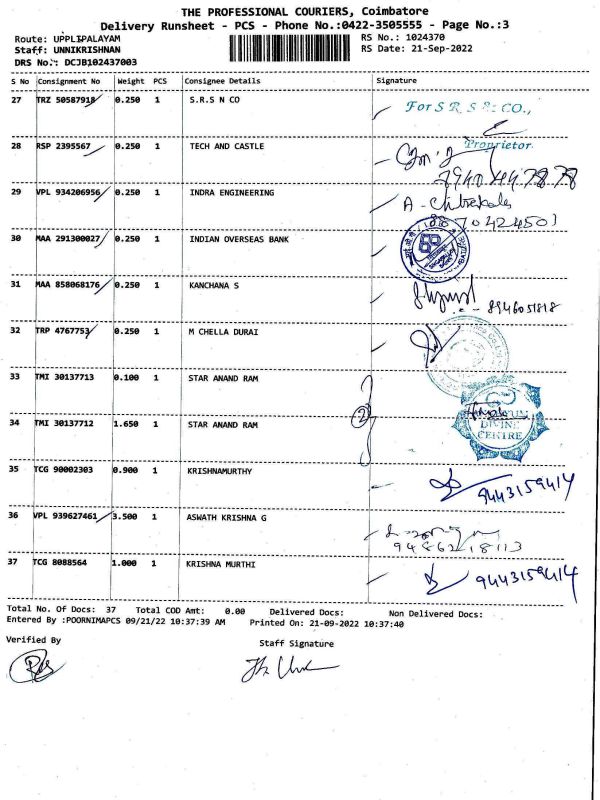 THE PROFESSIONAL COURIERS, Coimbatore
Delivery Runsheet - PCS - Phone No.:0422-3505555 - Page No.:3
Route: UPPLIPALAYAM RS No.: 1024370
Staff: UNNIKRISHNAN RS Date: 21-Sep-2022
DRS No.: DCJB102437003
S No Consignment No Weight PCS Consignee Details Signature
27 TRZ 50587918 0.250 1 S.R.S N CO
For S R S & CO.,
Proprietor
28 RSP 2395567 0.250 1 TECH AND CASTLE
29 VPL 934206956 0.250 1 INDRA ENGINEERING
30 MAA 291300027 0.250 1 INDIAN OVERSEAS BANK
31 MAA 858068176 0.250 1 KANCHANA S
8946051818
32 TRP 4767753 0.250 1 M CHELLA DURAI
33 TMI 30137713 0.100 1 STAR ANAND RAM
2
34 TMI 30137712 1.650 1 STAR ANAND RAM
DIVINE
CENTRE
35 TCG 90002303 0.900 1 KRISHNAMURTHY
9443159414
36 VPL 939627461 3.500 1 ASWATH KRISHNA G
9486218113
37 TCG 8088564 1.000 1 KRISHNA MURTHI
9443159414
Total No. Of Docs: 37 Total COD Amt: 0.00 Delivered Docs: Non Delivered Docs:
Entered By :POORNIMAPCS 09/21/22 10:37:39 AM Printed On: 21-09-2022 10:37:40
Verified By Staff Signature